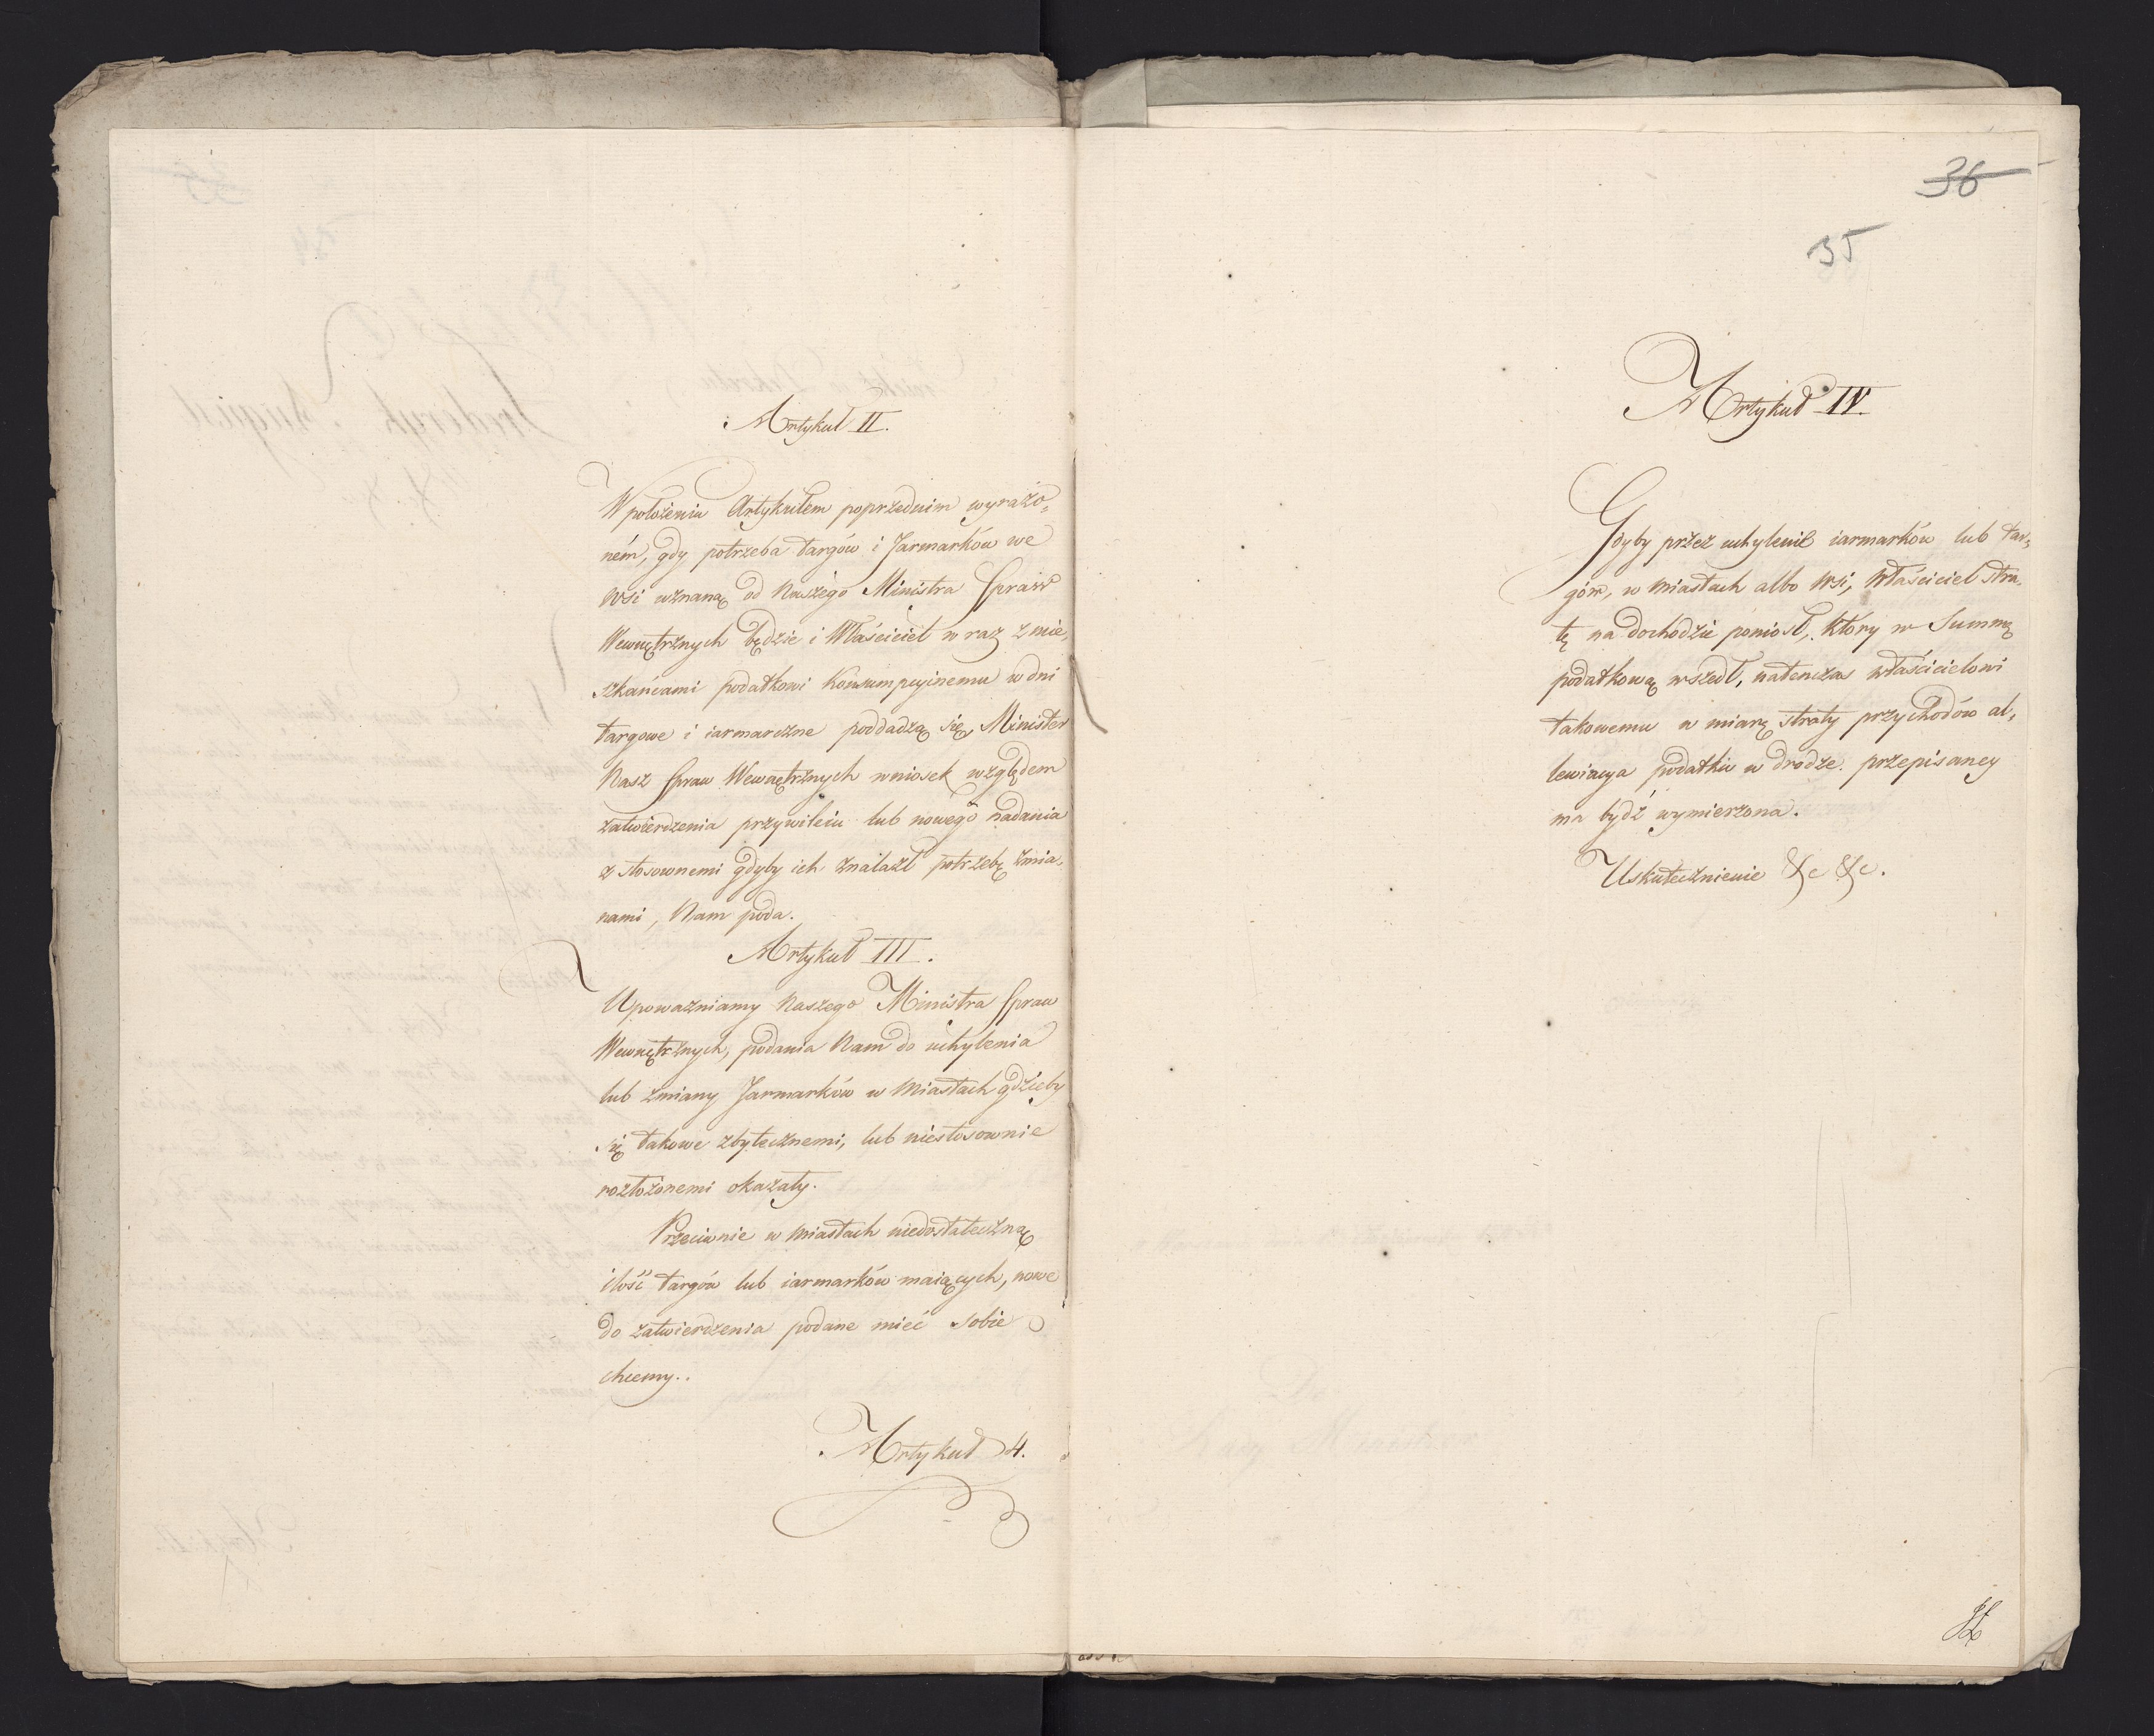 Artykuł II.
W położeniu Artykułem poprzednim wyrażo=
ném, gdy potrzeba targów i Jarmarków we
Wsi uznaną od Naszego Ministra Spraw
Wewnętrznych będzie i Właściciel w raz z mie=
szkańcami podatkowi Konsumpcyinemu w dni
targowe i iarmarczne poddadzą się, Minister
Nasz Spraw Wewnętrznych wniosek względem
zatwierdzenia przywileiu lub nowego nadania
z stosownemi gdyby ich znalazł potrzebę zmia=
nami, Nam poda.
Artykuł III.
Upoważniamy Naszego Ministra Spraw
Wewnętrznych, podania Nam do uchylenia
lub zmiany Jarmarków w Miastach gdzieby
się takowe zbytecznemi, lub niestosownie
rozłożonemi okazały.
Przeciwnie w Miastach niedostateczną
ilość targów lub iarmarków maiących, nowe
do zatwierdzenia podane mieć sobie
chcemy..
Artykuł 4.
36
35
Artykuł IV.
Gdyby przez uchylenie iarmarków lub tar=
gów, w Miastach albo Wsi, Właściciel stra=
tę na dochodzie poniosł, który w Summę
podatkową wszedł, natenczas właścicielowi
takowemu w miarę straty przychodów al=
lewiacya podatku w drodze przepisaney
ma bydź wymierzona.
Uskutecznienie &c &c.